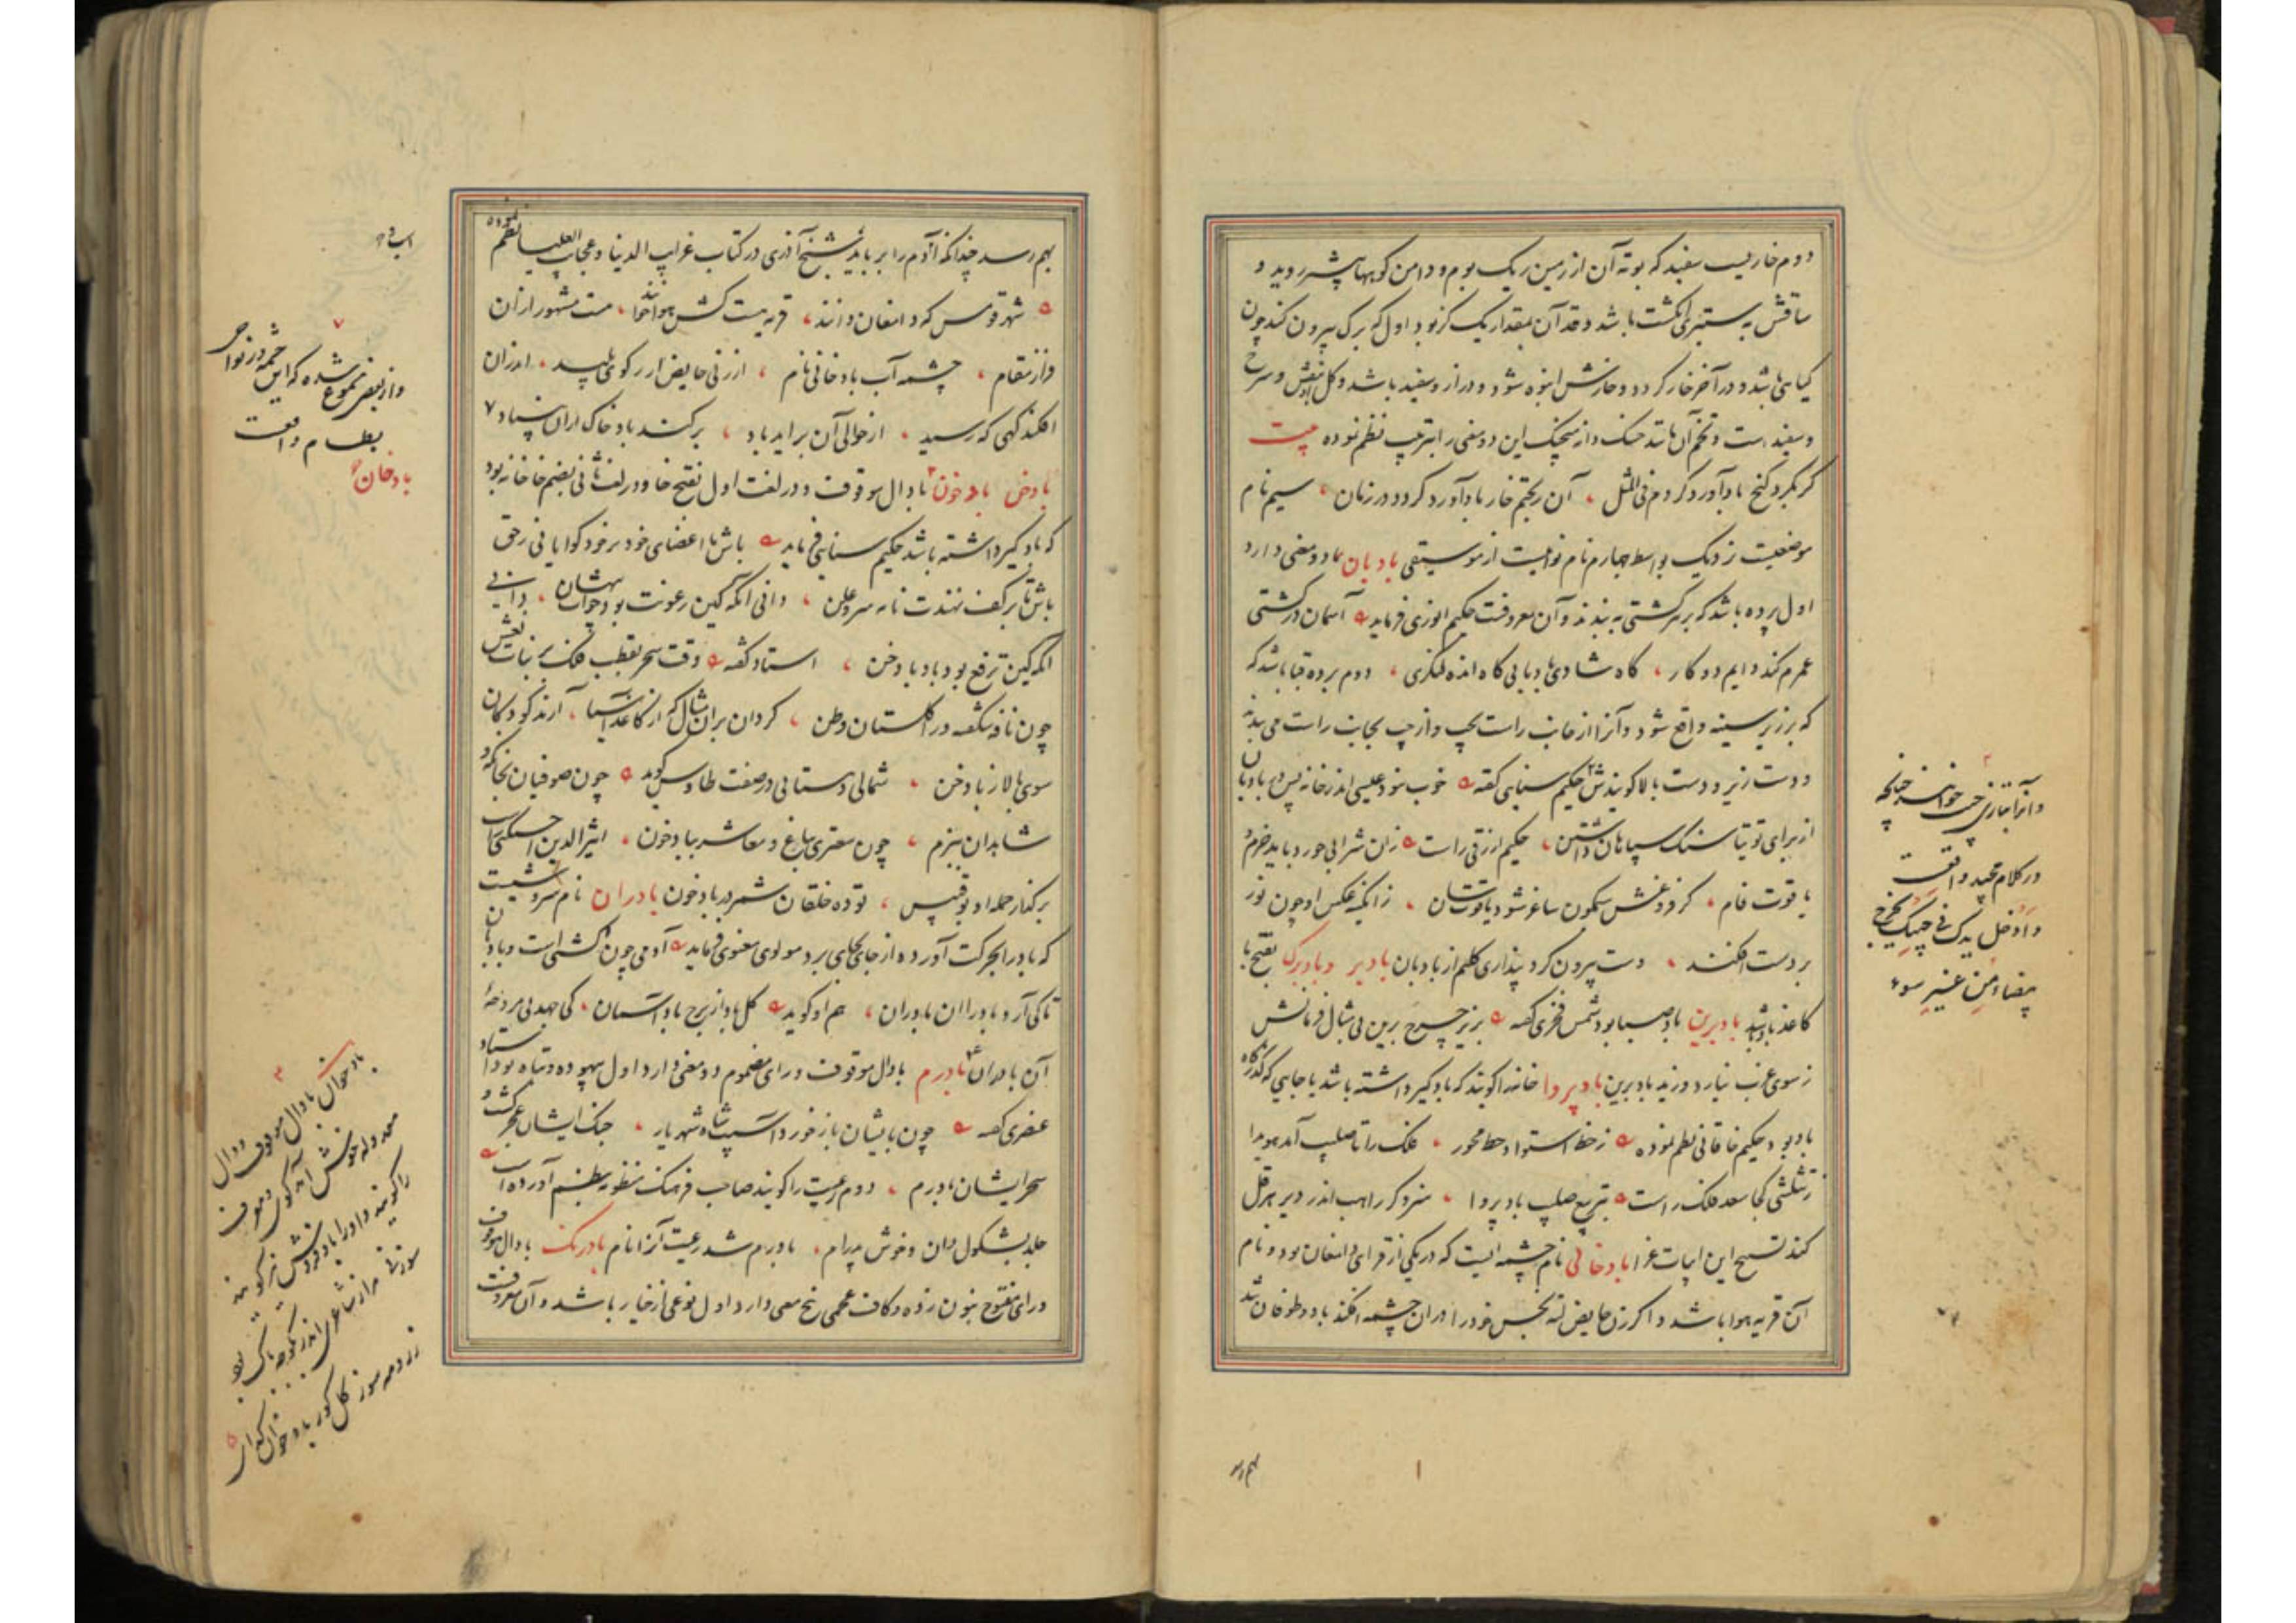 دوم خاریست سفید که بوته آن از زمین ریک بوم و دامن کوبها بیشتر روید و
ساقش به ستبری انگشت باشد و قد آن بمقدار یک گز بود و اول که برک بیرون کند چون
کیاهی باشد و در آخر خار کردد و خارش انبوه شود و دراز و سفید باشد و کل او بنفش و سرخ
و سفید است و تخم آن باشد این دو معنی را بترتیب نظم نموده بیت
کر بکرد کنج باد آورد کردم فی المثل آن بختم خار باد آورد کردد در زمان سیم نام
موضعیست نزدیک بواسط چهارم نام نوائیست از موسیقی بادبان دو معنی دارد
اول پرده باشد که بر سر کشتی به بندند و آن معروفست حکیم انوری فرماید آسمان در کشتی
عمرم کند دایم دو کار کاه شادی بادبانی کاه انده لنکری دوم برده قبا باشد که
که بر زیر سینه واقع شود و آنرا از جانب راست بچپ و از چپ بجانب راست می بندند
و دست زیر و دست بالا کویندش حکیم سنایی کفته خوب نبود عیسی اندر خانه پس در بادبان
از برای توتیا سنک سپاهان داشتن حکیم ازرقی راست زان شرابی خورد باید خرم و
یاقوت فام کز فروغش سکون ساغر شود یاقوتسان زانکه عکس او چون نور
بر دست افکند دست بیرون کرد پنداری کلیم از بادبان بادبر و بادبرک بفتح با
کاغذ باد باشد بادبرین باد صبا بود شمس فخری کفته بزیر چرخ برین بی مثال فرمانش
ز سوی غرب نیارد وزید بادبرین بادپروا خانه را کویند که بادکیر داشته باشد یا جایی که کذرکاه
باد بود حکیم خاقانی نظم نموده ز خط استوا و خط محور فلک را تا صلیب آمد هویدا
ز تثلیثی کجا سعد فلک راست بتربیع صلیب بادپروا سزد کر راهب اندر دیر هرقل
کند تسبیح این ابیات غرا بادخانی نام چشمه ایست که در یکی از قرای دامغان بود و نام
آن قریه هوا باشد و اکر زن حایض لته نجس خود را دران چشمه افکند باد و طوفان شد
بهم رسد
و آنرا بتازی جیب خوانند چنانچه
در کلام مجید واقعست
و ادخل یدک فی جیبک تخرج
بیضاء من غیر سوء
بهم رسد چندانکه آدم را برباید شیخ آذری در کتاب غرایب الدنیا و عجایب العلیا نظم نموده
شهر قومس که دامغان دانند قریه ایست کش هوا خوانند هست مشهور ازان
فراز مقام چشمه آب بادخانی نام از زنی حایض ار رکوی پلید اندران
افکند کهی که رسید از حوالی آن برآید باد برکند باد خاک ازان بنیاد
بادخن بادخون با دال موقوف و در لغت اول بفتح خا و در لغت ثانی بضم خا خانه بود
که بادکیر داشته باشد حکیم سنایی فرماید باش تا اعضای خود بر خود کوا یابی زحق
باش تا بر کف نهندت نامه سر و علن دانی آنکه کین رعونت بود و خواب بینی
آنکه کین ترفع بود باد بادخن استاد کفته وقت سحر بقطب فلک بر بنات نعش
چون نافه شکفته در کلستان وطن کردان بران مثال که از کاغذ آسیا آرند کودکان
سوی بالا ز بادخن شمالی دهستانی در صفت طاوس کوید چون صوفیان بخانکه و
شاهدان ببزم چون مقری بباغ و معاشر ببادخون اثیرالدین اخسیکتی راست
بر کنار جمله او بوقبیس توده خلقان شمر در بادخون بادران نام سروشیست
که باد را بحرکت آورده از جای بجای برد مولوی معنوی فرماید آدمی چون کشتی است و بادبان
تا کی آرد باد را آن بادران هم او کوید کل باد از برج باد آسمان کی جهد بی مروحهٔ
آن بادران بادرم با دال موقوف و رای مضموم دو معنی دارد اول بیهوده و تباه بود استاد
عنصری کفته چون بایشان باز خورد آسیب شاه شهریار جنک ایشان عجز کشت و
سحر ایشان بادرم دوم رعیت را کویند صاحب فرهنک منظومه بنظم آورده
جلد بشکول دان و خوش پدرام بادرم شد رعیت آنرا نام بادرنک با دال موقوف
و رای مفتوح بنون زده و کاف عجمی پنج معنی دارد اول نوعی از خیار باشد و آن معروفست
و از بعضی مسموع شده که این چشمه در نواحی
بسطام واقعست
بادخان
بادخوان با دال موقوف
را کویند و او را بادفروش نیز کویند